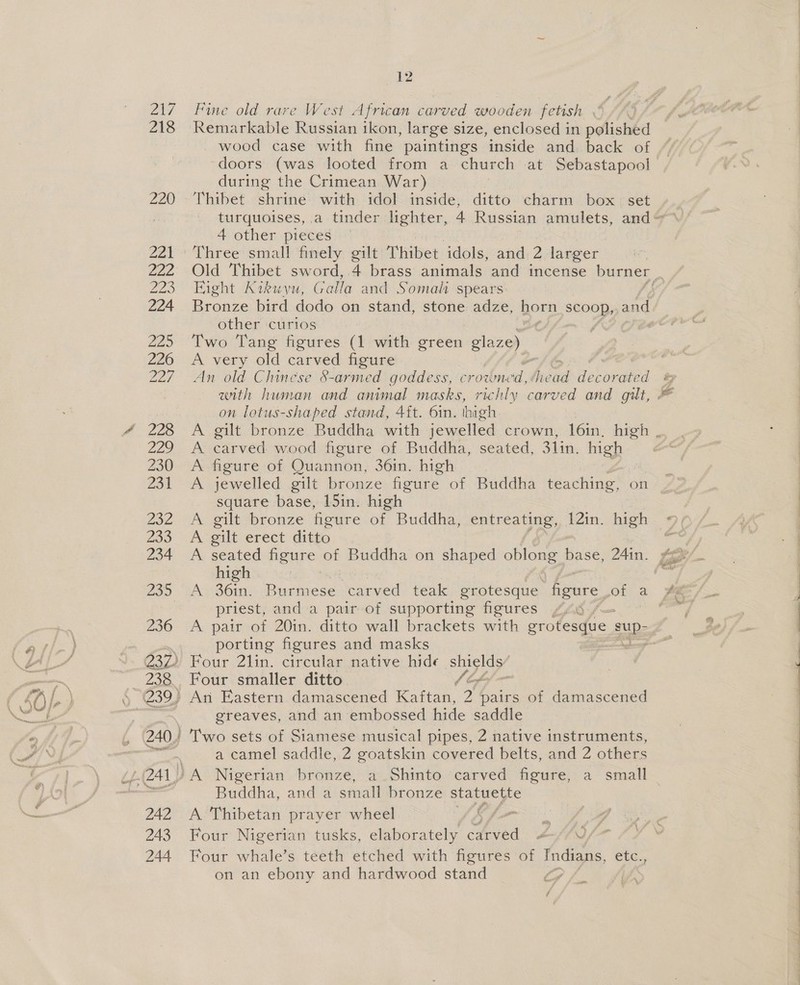 12
217 Fine old rare West African carved wooden fetish
218 Remarkable Russian ikon, large size, enclosed in polished
wood case with fine paintings inside and back of
doors (was looted from a church at Sebastapool
during the Crimean War)
220 Thibet shrine with idol inside, ditto charm box set
turquoises, a tinder lighter, 4 Russian amulets, and
4 other pieces
221 Three small finely gilt Thibet idols, and 2 larger
222 Old Thibet sword, 4 brass animals and incense burner
223 Eight Kikuyu, Galla and Somali spears
224 Bronze bird dodo on stand, stone adze, horn scoop, and
other curios
225 Two Tang figures (1 with green glaze)
226 A very old carved figure
227 An old Chinese 8-armed goddess, crowned, head decorated
with human and animal masks, richly carved and gilt,
on lotus-shaped stand, 4ft. 6in. high
228 A gilt bronze Buddha with jewelled crown, 16in, high
229 A carved wood figure of Buddha, seated, 31in. high
230 A figure of Quannon, 36in. high
231 A jewelled gilt bronze figure of Buddha teaching, on
square base, 15in. high
232 A gilt bronze figure of Buddha, entreating, 12in. high
233 A gilt erect ditto
234 A seated figure of Buddha on shaped oblong base, 24in.
high
235 A 36in. Burmese carved teak grotesque figure of a
priest, and a pair of supporting figures
236 A pair of 20in. ditto wall brackets with grotesque sup-
porting figures and masks
237 Four 21in. circular native hide shields
238 Four smaller ditto
239 An Eastern damascened Kaftan, 2 pairs of damascened
greaves, and an embossed hide saddle
240 Two sets of Siamese musical pipes, 2 native instruments,
a camel saddle, 2 goatskin covered belts, and 2 others
241 A Nigerian bronze, a Shinto carved figure, a small
Buddha, and a small bronze statuette
242 A Thibetan prayer wheel
243 Four Nigerian tusks, elaborately carved
244 Four whale's teeth etched with figures of Indians, etc.,
on an ebony and hardwood stand